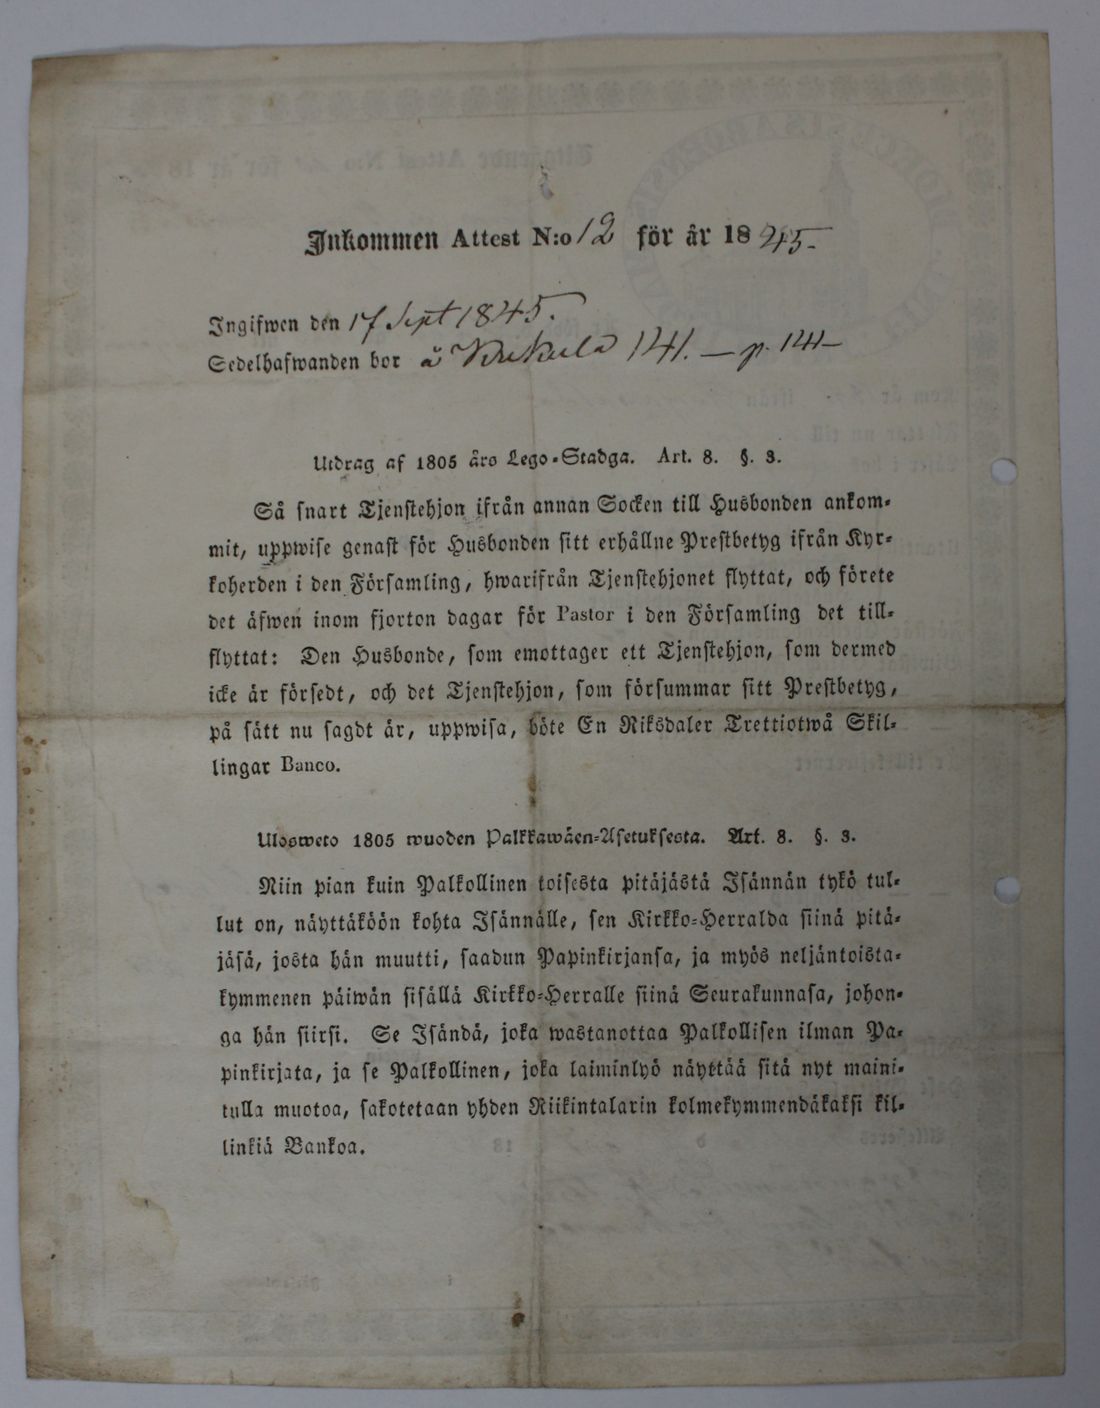 Inkommen Attest N:o 12 för år 1845.
Ingifwen den 17 Sept 1845.
Sedelhafwanden bor å 141. — p. 141—
Utdrag af 1805 års Lego-Stadga. Art. 8. §. 3.
Så snart Tjenstehjon ifrån annan Socken till Husbonden ankom-
mit, uppwise genast för Husbonden sitt erhållne Prestbetyg ifrån Kyr-
koherden i den Församling, hwarifrån Tjenstehjonet flyttat, och förete
det äfwen inom fjorton dagar för Pastor i den Församling det till-
flyttat: Den Husbonde, som emottager ett Tjenstehjon, som dermed
icke är försedt, och det Tjenstehjon, som försummar sitt Prestbetyg,
på sätt nu sagdt är, uppwisa, böte En Riksdaler Trettiotwå Skil-
lingar Banco.
Ulosweto 1805 wuoden Palkkawäen-Asetuksesta. Art. 8. §. 3.
Niin pian kuin Palkollinen toisesta pitäjästä Isännän tykö tul-
lut on, näyttäköön kohta Isännälle, sen Kirkko-Herralda siinä pitä-
jäsä, josta hän muutti, saadun Papinkirjansa, ja myös neljäntoista-
kymmenen päiwän sisällä Kirkko-Herralle siinä Seurakunnasa, johon-
ga hän siirsi. Se Isändä, joka wastanottaa Palkollisen ilman Pa-
pinkirjata, ja se Palkollinen, joka laiminlyö näyttää sitä nyt maini-
tulla muotoa, sakotetaan yhden Riikintalarin kolmekymmendäkaksi kil-
linkiä Bankoa.